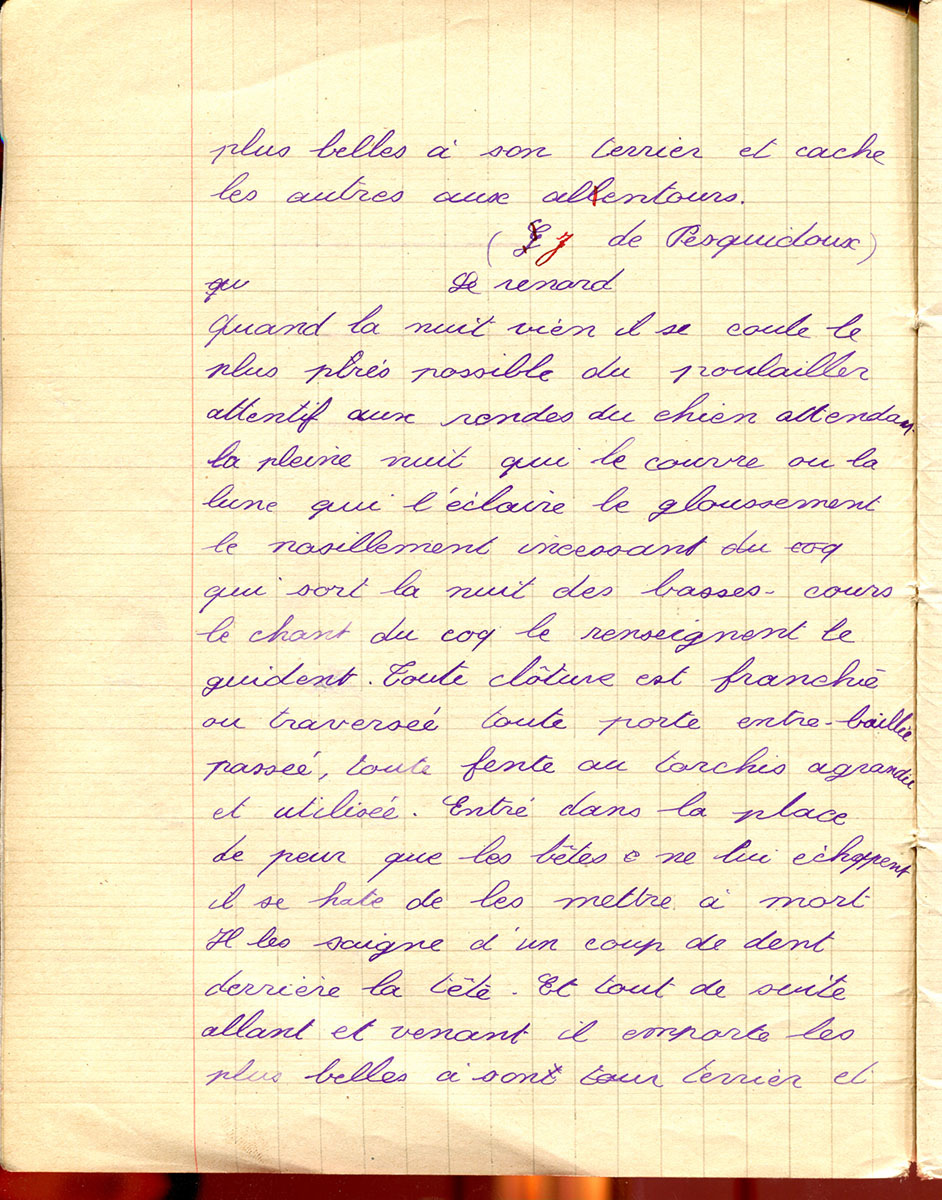 plus belles à son terrier et cache
les autres aux allentours.
( J de Pesquidoux)
qu Le renard
Quand la nuit vien il se coule le
plus près possible du poulailler
attentif aux rondes du chien attendan
la pleine nuit qui le couvre ou la
lune qui l'éclaire le gloussement
le nasillement incessant du coq
qui sort la nuit des basses-cours
le chant du coq le renseignent le
guident. Toute clôture est franchie
ou traverseé toute porte entre-baillie
passeé, toute fente au torchis agrandie
et utilisée. Entré dans la place
de peur que les bêtes ne lui échappent
il se hate de les mettre à mort
Il les saigne d'un coup de dent
derrière la tête. Et tout de suite
allant et venant il emporte les
plus belles à son terrier et